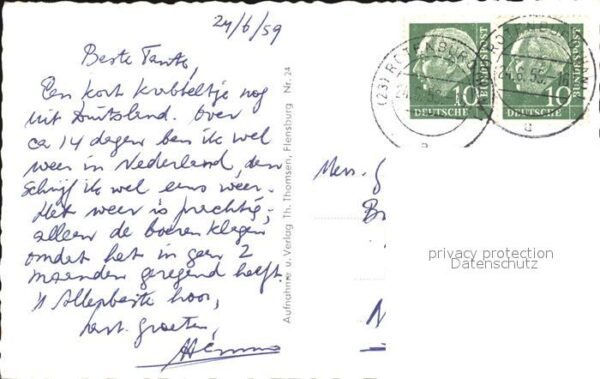 24/6/59
Beste Tante,
Een kort krabbeltje nog
uit Duitsland. Over
ca 14 dagen ben ik wel
weer in Nederland, dan
schrijf ik wel eens weer.
Het weer is prachtig,
alleen de boeren klagen
omdat het in geen 2
maanden geregend heeft.
'n Allerbeste hoor,
hart. groeten,
Aufnahme u. Verlag Th. Thomsen, Flensburg Nr. 24
(23) ROTENBURG
24.6.59
10
DEUTSCHE
BUNDESPOST
ROTENBURG
24.6.59-16
a
10
DEUTSCHE
BUNDESPOST
privacy protection
Datenschutz